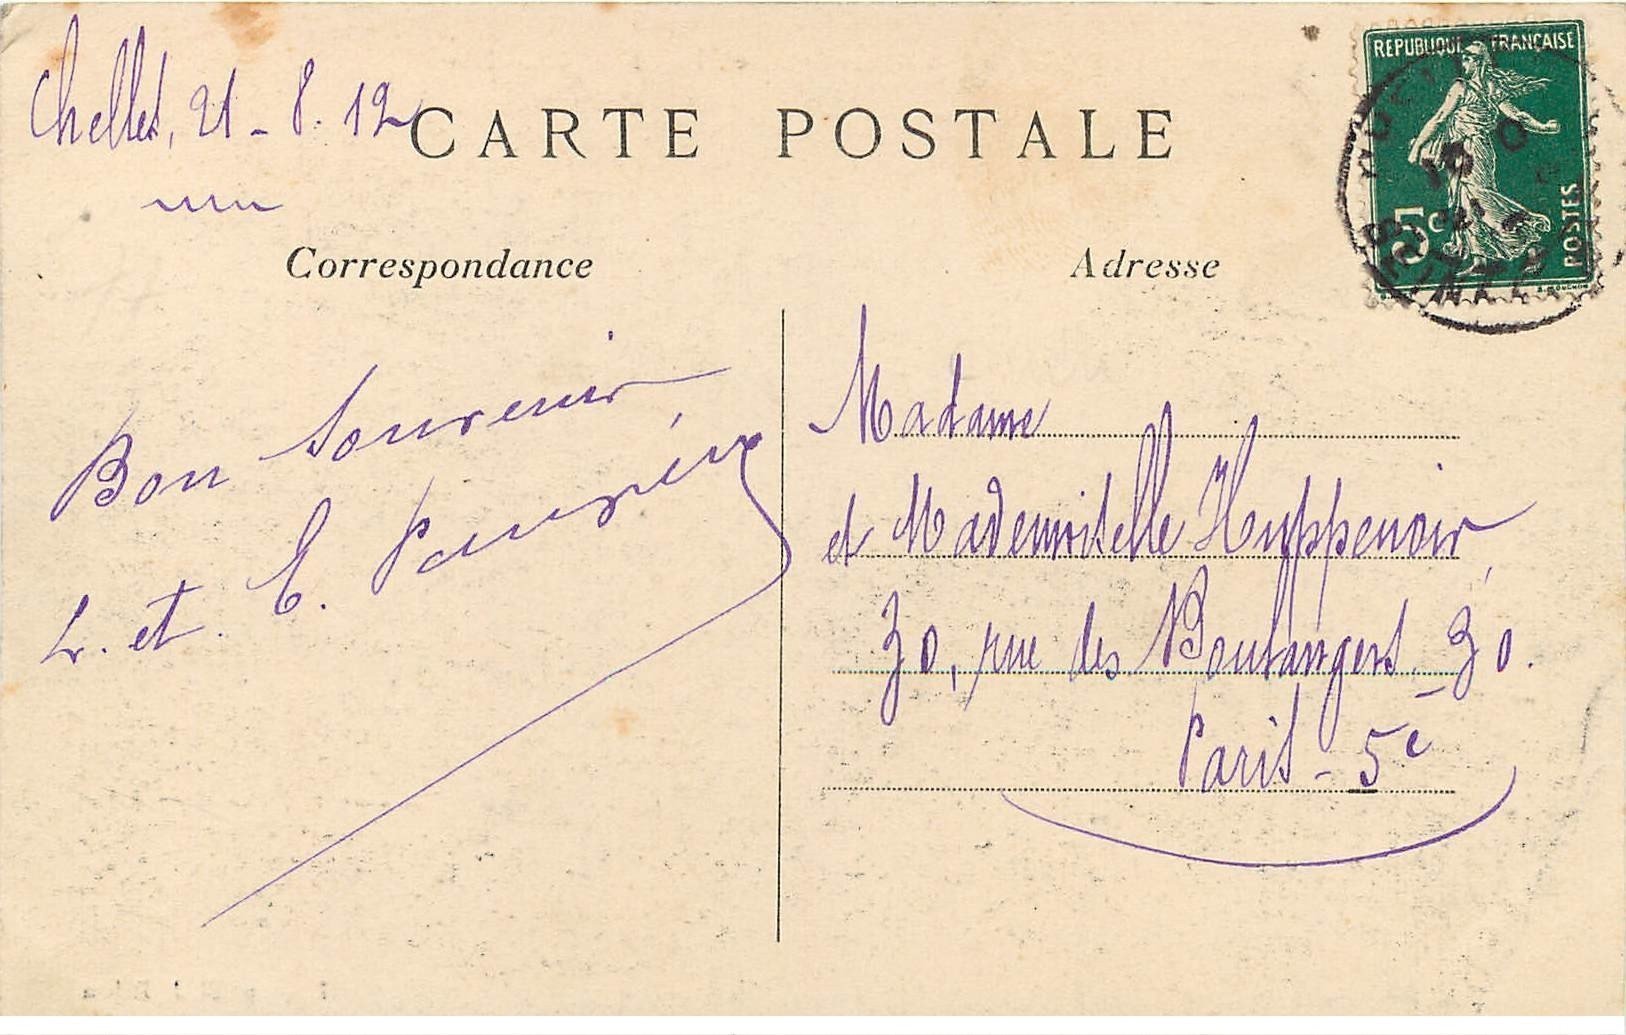 Chelles, 21-8.12
CARTE POSTALE
REPUBLIQUE FRANÇAISE
5c
POSTES
Correspondance
Adresse
Bon souvenir
L. et E.
Madame
et Mademoiselle Huppenoir,
30, rue des Boulangers - 30.
Paris - 5e